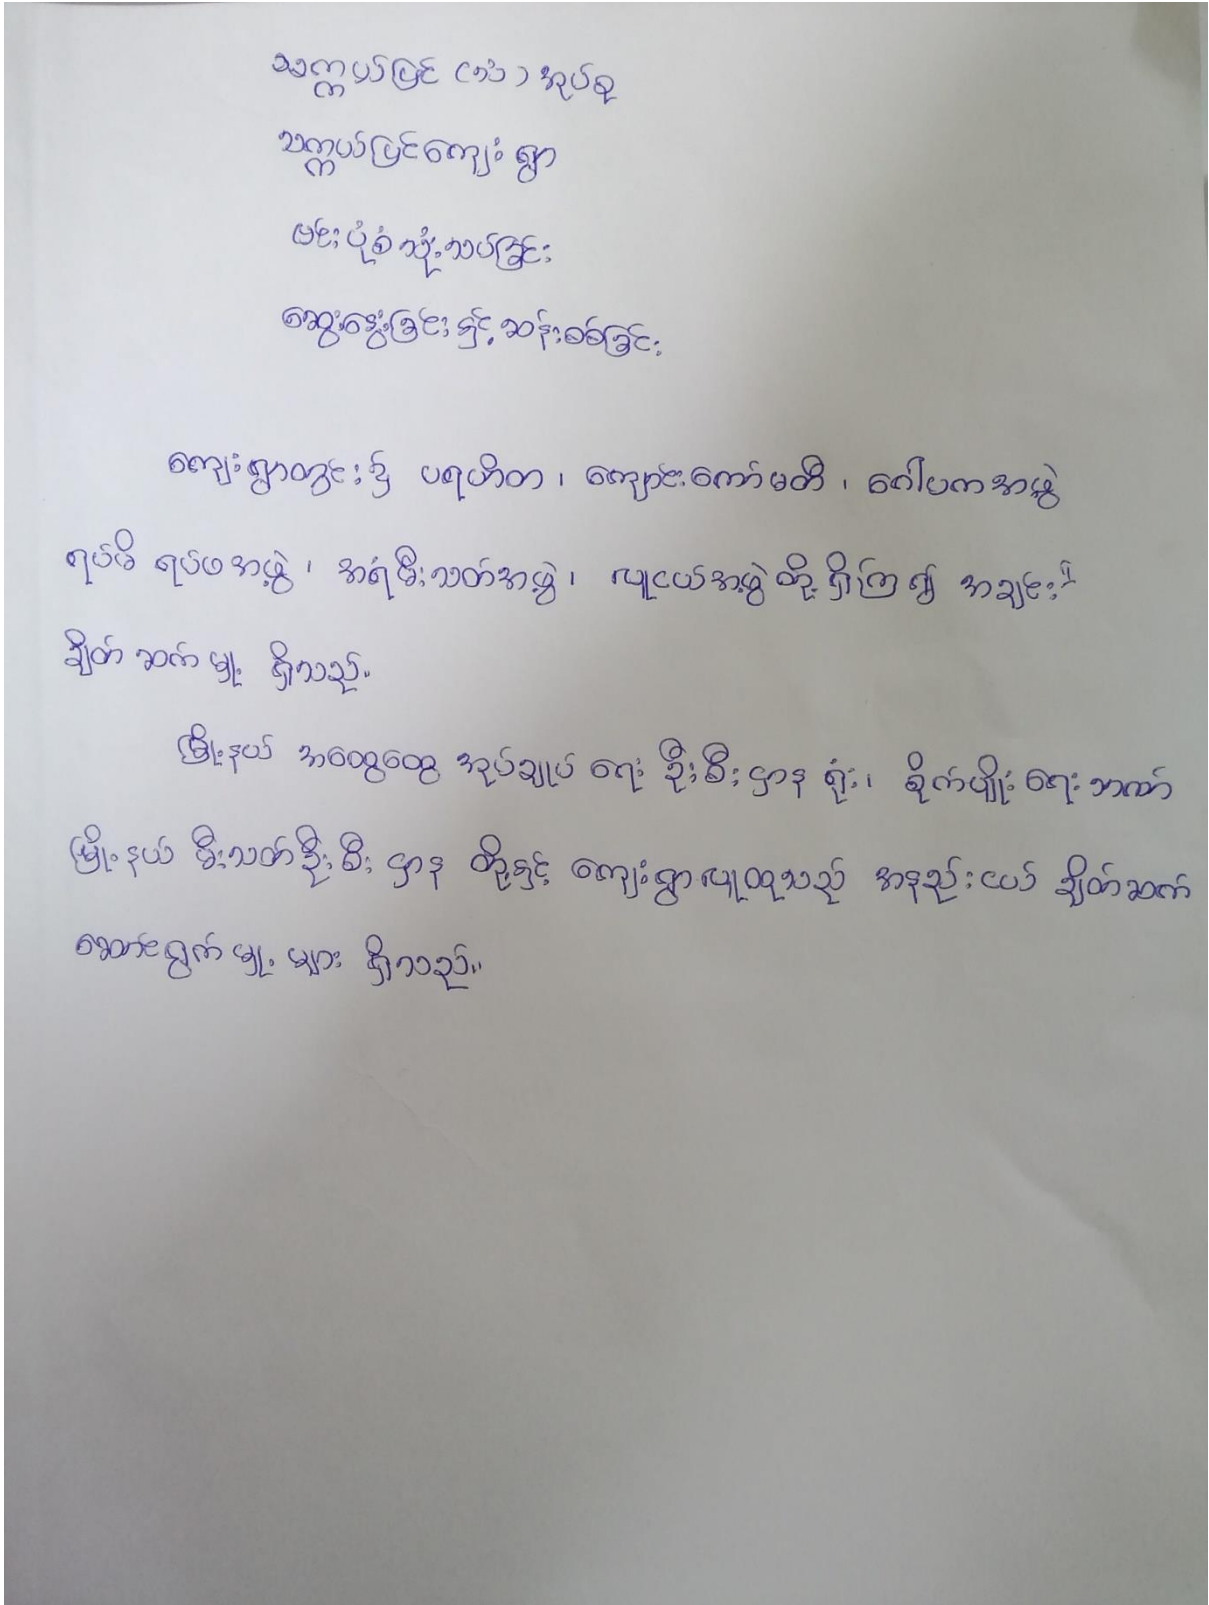 သက္ကယ်ပြင် (သံ) အုပ်စု
သက္ကယ်ပြင်ကျေးရွာ
ဗင်းပုံစံသုံးသပ်ခြင်း
ဆွေးနွေးခြင်းနှင့်ဆန်းစစ်ခြင်း
ကျေးရွာတွင်း၌ ပရဟိတ၊ ကျောင်းကော်မတီ၊ ဂေါပကအဖွဲ့
ရပ်မိ ရပ်ဖအဖွဲ့၊ အရံမီးသတ်အဖွဲ့၊ လူငယ်အဖွဲ့တို့ ရှိကြ၍ အချင်းချင်း
ချိတ်ဆက်မှု ရှိသည်။
မြို့နယ် အထွေထွေ အုပ်ချုပ်ရေးဦးစီးဌာနရုံး၊ စိုက်ပျိုးရေးဘဏ်
မြို့နယ် မီးသတ်ဦးစီးဌာန တို့နှင့် ကျေးရွာလူထုသည် အနည်းငယ် ချိတ်ဆက်
ဆောင်ရွက်မှု များ ရှိသည်။